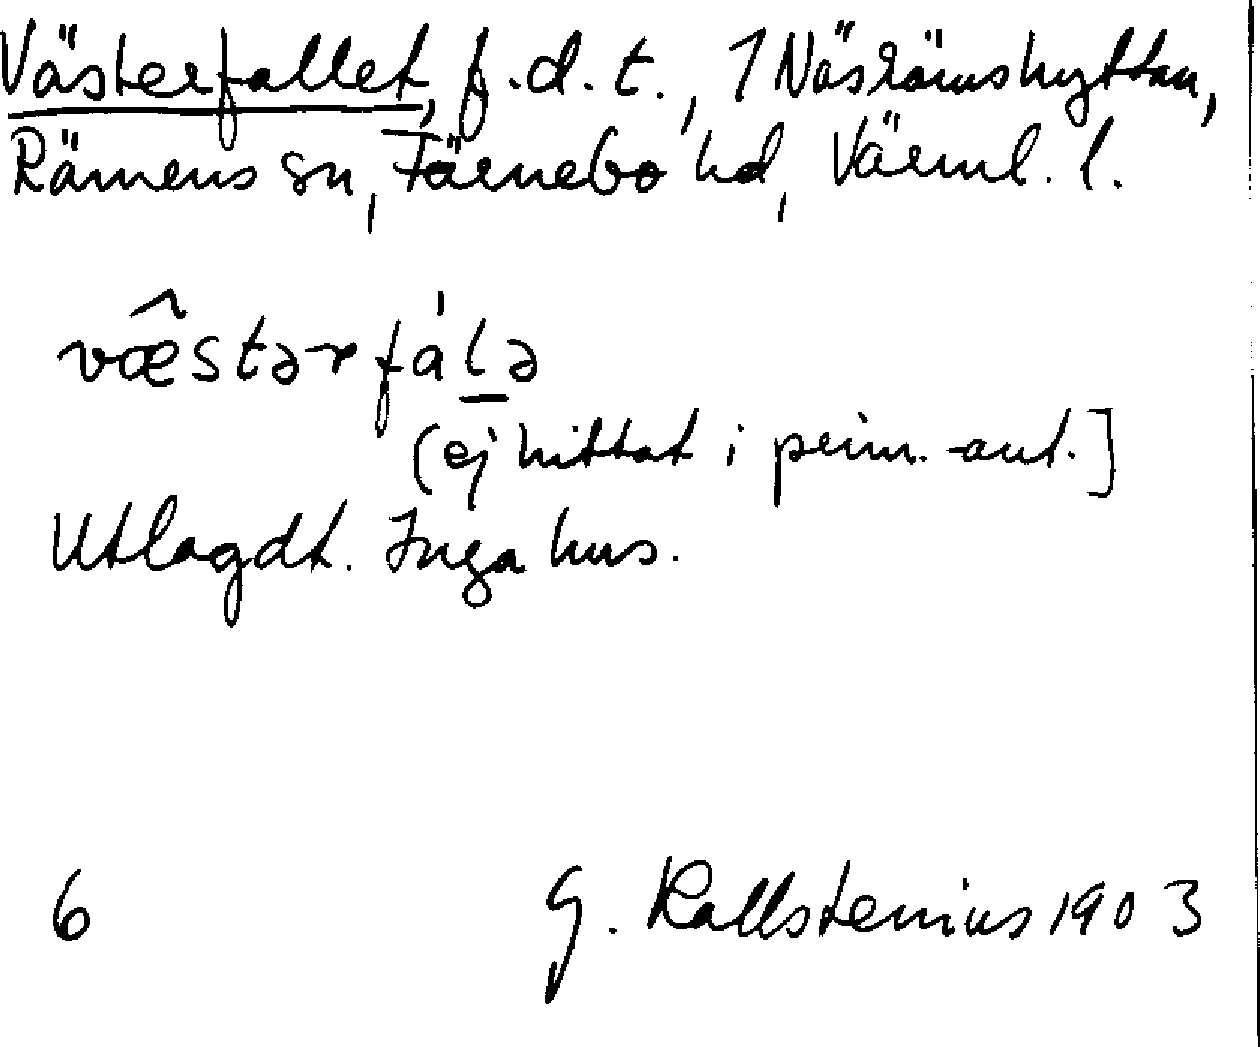 Västerfallet, f.d.t., 1 Näsrämshyttan,
Rämens sn, Färnebo hd, Värml. l.
vœ̂stərfál̠ə
(ej hittat i prim.-ant.]
Utlagdt. Inga hus.
6 G. Kallstenius 1903